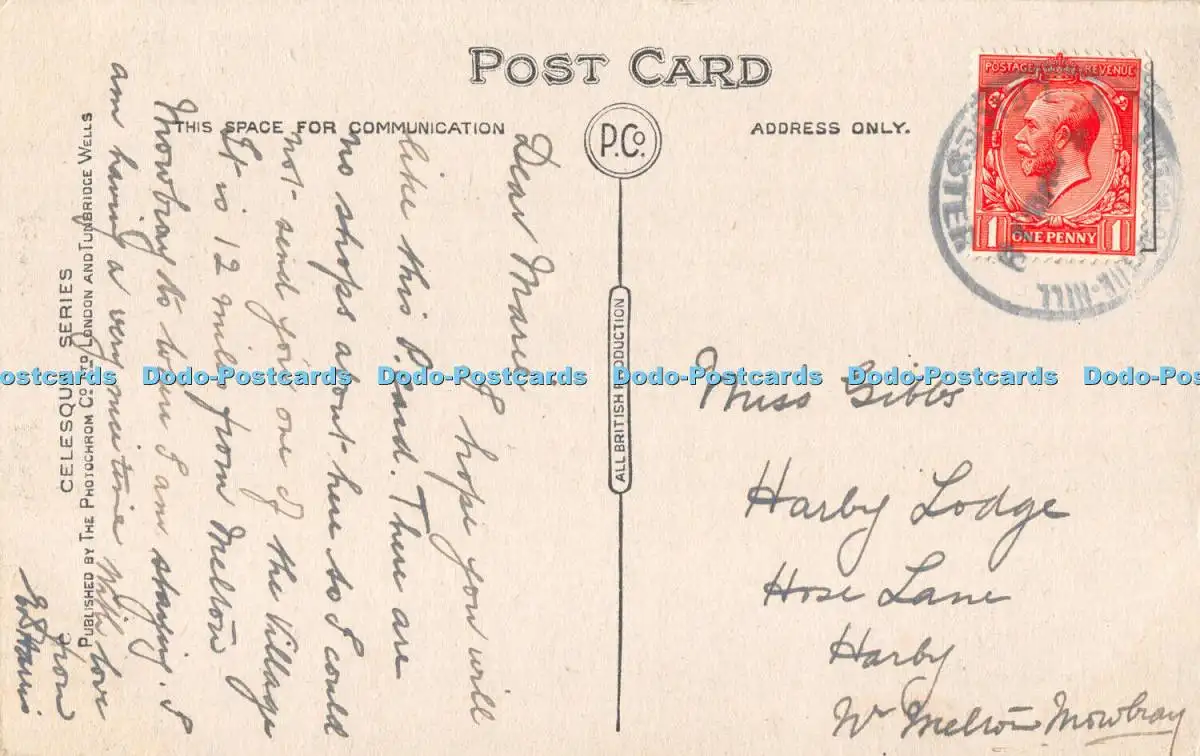 POST CARD
THIS SPACE FOR COMMUNICATION
P.Co.
ADDRESS ONLY.
POSTAGE REVENUE
1 ONE PENNY 1
ESTER
HILL
ALL BRITISH PRODUCTION
Dear Marie
I hope you will
like this P. Card. There are
no shops about here so I could
not send you one of the Village
It is 12 mile from Melton
Mowbray to were I am staying. I
am having a very nice time With love
from
Harris
CELESQUE SERIES
PUBLISHED BY THE PHOTOCHROM CO. LTD LONDON AND TUNBRIDGE WELLS
Miss Gibbs
Harby Lodge
Hose Lane
Harby
Nr Melton Mowbray
ostcards Dodo-Postcards Dodo-Postcards Dodo-Postcards Dodo-Postcards Dodo-Pos